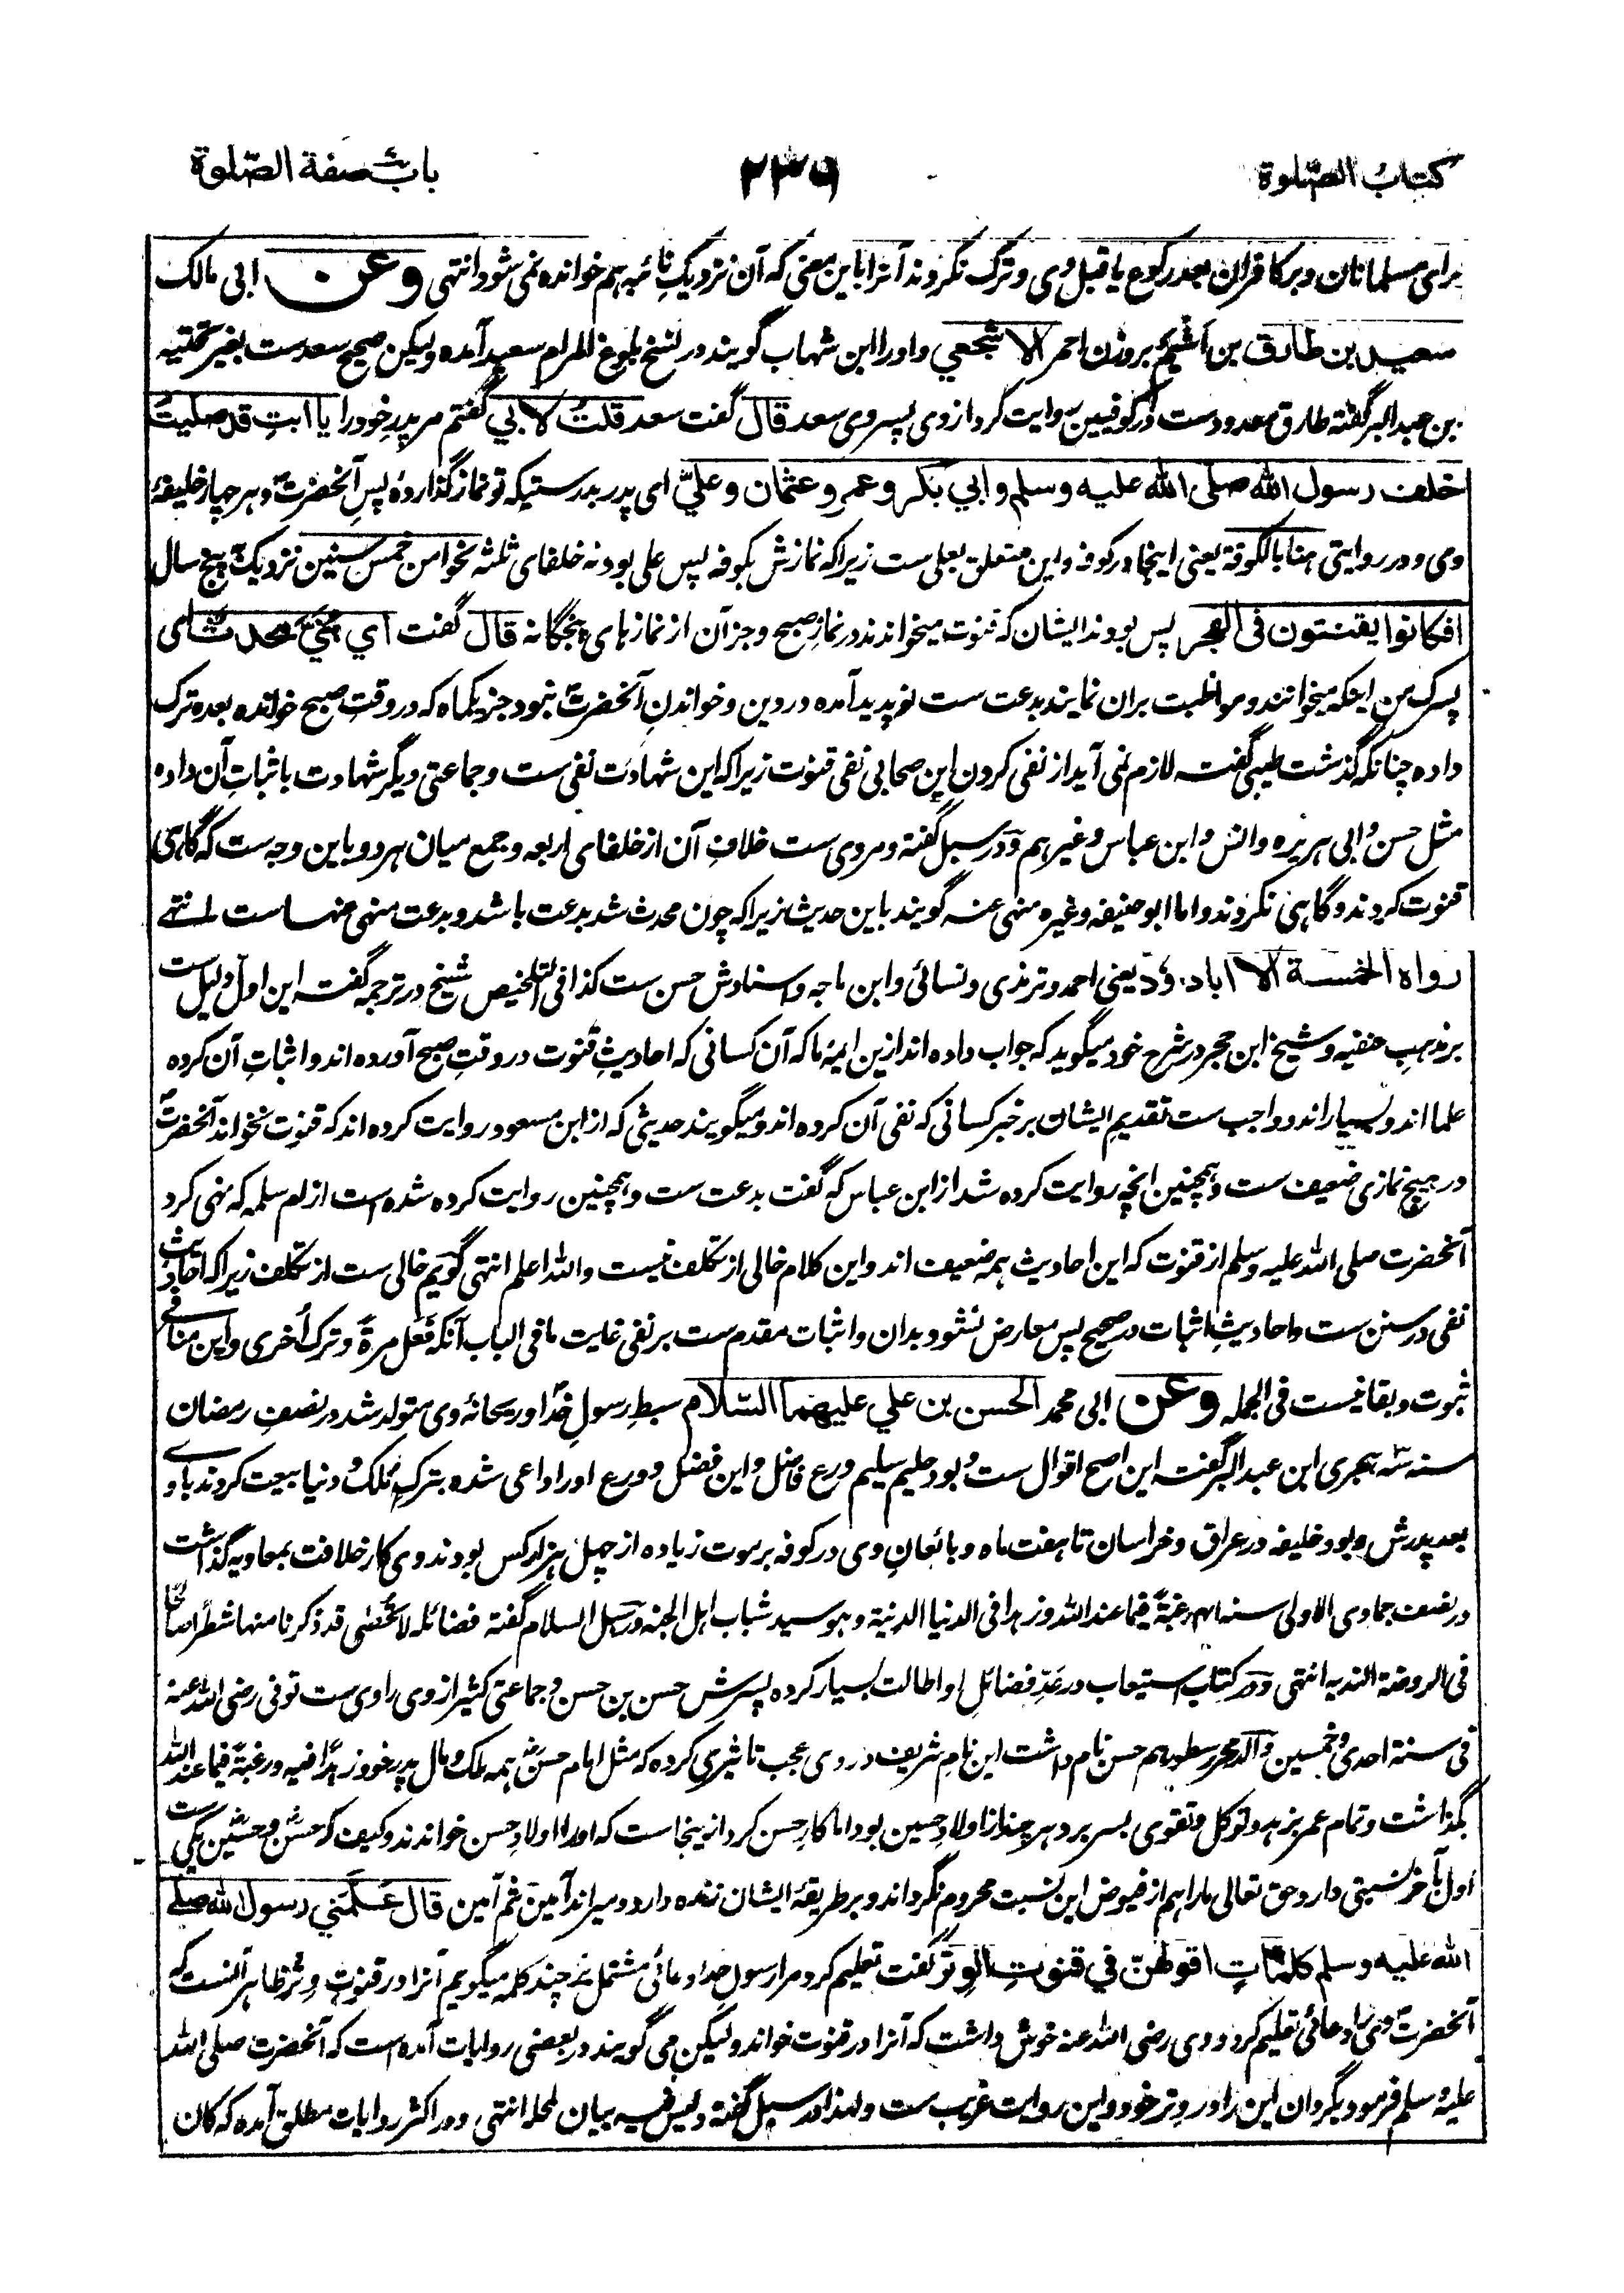 کتاب الصّلوة
۲۳۶
باب صفة الصّلوة
برای مسلمانان و بر کافران بعد رکوع یا قبل وی و ترک نکردند آنرا باین معنی که آن نزدیک نائبه هم خوانده نمی شود انتهی وعن ابی مالک
سعید بن طارق بن اَشْیَم بروزن احمر الاشجعي واورا ابن شهاب گویند در نسخ بلوغ المرام سعید آمده ولیکن صحیح سعد ست بغیر تحتیه
بن عبد البر گفته طارق معدود ست در کوفیین روایت کرد از وی پسر وی سعد قال گفت سعد قلتُ لابي گفتم مر پدرِ خود را یا ابتِ قد صلیتَ
خلف رسول الله صلی الله علیه وسلم وابي بکر وعمر وعثمان وعليّ ای پدر بدرستیکه تو نماز گذاردهٔ پسِ آنحضرتؐ و هر چهار خلیفهٔ
وی و در روایتی هنا بالکوفة یعنی اینجا در کوفه و این متعلق بعلی ست زیراکه نمازش بکوفه پس علی بود نه خلفای ثلثه نحوا من خمس سنین نزدیک پنج سال
افکانوا یقنتون فی الفجر پس بودند ایشان که قنوت میخواندند در نمازِ صبح و جز آن از نمازهای پنجگانه قال گفت اي بُنَيَّ محدث ای
پسرک من اینکه میخوانند و مواظبت بران نمایند بدعت ست نو پدید آمده در دین و خواندنِ آنحضرتؐ نبود جز یکماه که در وقتِ صبح خوانده بعده ترک
داده چنانکه گذشت طیبی گفته لازم نمی آید از نفی کردن این صحابی نفی قنوت زیراکه این شهادت نفی ست و جماعتی دیگر شهادت باثباتِ آن داده
مثل حسن و ابی هریره و انس و ابن عباس وغیرهم و در سبل گفته و مروی ست خلافِ آن از خلفای اربعه و جمع میان هر دو باین وجه ست که گاهی
قنوت کردند و گاهی نکردند و اما ابو حنیفه وغیره منهی عنه گویند باین حدیث زیراکه چون محدث شد بدعت باشد و بدعت منهی عنها ست انتهے
رواه الخمسة الا ابا داود یعنی احمد و ترمذی و نسائی و ابن ماجه و اسنادش حسن ست کذا فی التلخیص شیخ در ترجمه گفته این اول دلیل ست
بر مذهبِ حنفیه و شیخ ابن حجر در شرح خود میگوید که جواب داده اند ازین ایمهٔ ما که آن کسانی که احادیثِ قنوت در وقتِ صبح آورده اند و اثباتِ آن کرده
علما اند و بسیار اند و واجب ست تقدیم ایشان بر خبر کسانی که نفی آن کرده اند و میگویند حدیثی که از ابن مسعود روایت کرده اند که قنوت نخواند آنحضرتؐ
در هیچ نمازی ضعیف ست و همچنین انچه روایت کرده شد از ابن عباس که گفت بدعت ست و همچنین روایت کرده شده است از ام سلمه که نهی کرد
آنحضرت صلی الله علیه وسلم از قنوت که این احادیث همه ضعیف اند و این کلام خالی از تکلف نیست والله اعلم انتهی گویم خالی ست از تکلف زیراکه احادیث
نفی در سنن ست و احادیثِ اثبات در صحیح پس معارض نشود بدان و اثبات مقدم ست بر نفی غایت ما فی الباب آنکه فعل مرةً و ترک اُخری و این منافی
ثبوت و بقا نیست فی الجمله وعن ابی محمد الحسن بن علي علیهما السّلام سبطِ رسولِ خدا و ریحانهٔ وی متولد شد در نصفِ رمضان
سنه هجری ابن عبد البر گفته این اصح اقوال ست و بود حلیم سلیم ورع فاضل و این فضل و ورع او را داعی شده بترکِ ملک و دنیا بیعت کردند با وے
بعد پدرش و بود خلیفه در عراق و خراسان تا هفت ماه و بائعانِ وی در کوفه بر موت زیاده از چهل هزار کس بودند وی کار خلافت بمعاویه گذاشت
در نصف جمادی الاولی سنه ۴۱ رغبةً فیما عند الله و زهدا فی الدنیا الدنیة و هو سید شباب اهل الجنه و در سبل السلام گفته فضائله لا تحصی قد ذکرنا منها شطرا صالحا
فی الروضة الندیه انتهی و در کتاب استیعاب در عدِّ فضائلِ او اطالت بسیار کرده پسرش حسن بن حسن و جماعتی کثیر از وی راوی ست توفی رضی الله عنه
فی سنة احدی وخمسین و والد محرر سطور هم حسن نام داشت این نامِ شریف در وی عجب تاثیری کرده که مثل امام حسن همه ملک و مال پدرِ خود زهدا فیه و رغبةً فیما عند الله
بگذاشت و تمام عمر بزهد و توکل و تقوی بسر برد هر چند از اولادِ حسین بود اما کارِ حسن کرد از ینجا ست که او را اولادِ حسن خوانند و کیف که حسن و حسین یکی ست
اول بآخر نسبتی دارد حق تعالی ما را هم از فیوض این نسبت محروم نگرداند و بر طریقهٔ ایشان زنده دارد و میراند آمین ثم آمین قال علَّمني رسول الله صلے
الله علیه وسلم کلماتٍ اقولهنّ في قنوتِ الوتر گفت تعلیم کرد مرا رسولِ خدا دعائی مشتمل بر چند کلمه میگویم آنرا در قنوت وتر ظاهر آنست که
آنحضرتؐ وی را دعائی تعلیم کرد و وی رضی الله عنه خوش داشت که آنرا در قنوت خواند ولیکن می گویند در بعضی روایات آمده است که آنحضرت صلی الله
علیه وسلم فرمود بگردان این را در وترِ خود و این روایت غریب ست و لهذا در سبل گفته ولیس فیه بیان لمحله انتهی و در اکثر روایات مطلق آمده که کان